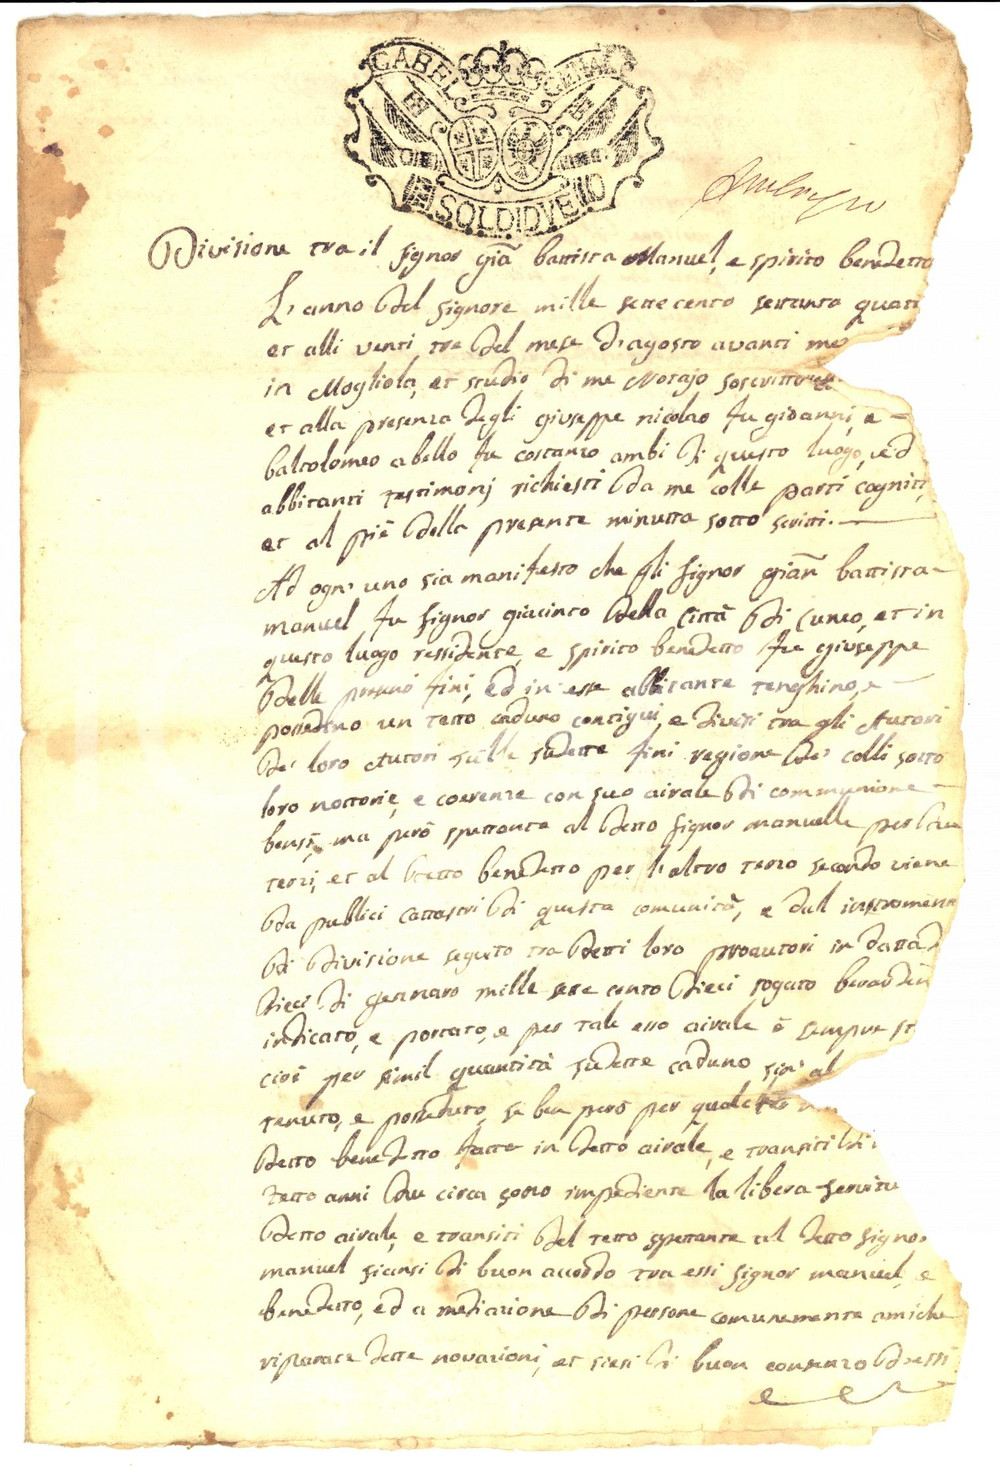 GABEL GENAL
SOLDI DVE
Divisione tra il signor giãn battista Manuel, e spirito benedetto
L'anno del signore mille sette cento settanta quatt
et alli venti tre del mese d'agosto avanti me
in Mogliola, et studio di me Notajo soscritto
et alla presenza degli giuseppe nicolao fu gioanni, e
baltolomeo abello fu costanzo ambi di questo luogo, ed
abbitanti testimonj richiesti da me colle parti cogniti,
et al piè della presente minutta sotto scritti.
Ad ogn'uno sia manifesto che gli signor giãn battista
manuel fu signor giacinto della Città di Cuneo, et in
questo luogo ressidente, e spirito benedetto fu giuseppe
delle fini, ed in esse abbitante tenghino, e
possedino un tetto caduno contigui, e divisi tra gli Autori
de' loro Autori sulle sudette fini reggione de' colli sotto
loro nottorie, e coerenze con suo airale di communione
bensi, ma però spettante al detto signor manuelle per due
terzi, et al detto benedetto per l'altro terzo secondo viene
da publici cattastri di questa comunità, e dal instromen
di divisione seguito tra detti loro proautori in datta d
dieci di gennaro mille sette cento dieci rogato
indicato, e portato, e per tale esso airale è sempre st
cioè per simil quantità sudette caduno
tenuto, e posseduto, se ben però per qualche
detto benedetto fatte in detto airale, e transiti di
tetto anni due circa sono impediente la libera servitu
detto airale, e transiti del tetto spettante al detto signor
manuel siansi di buon accordo tra essi signor manuel, e
benedetto, ed a mediazione di persone comunemente amiche
riparate dette novazioni, et siasi di buon consenso d'essi